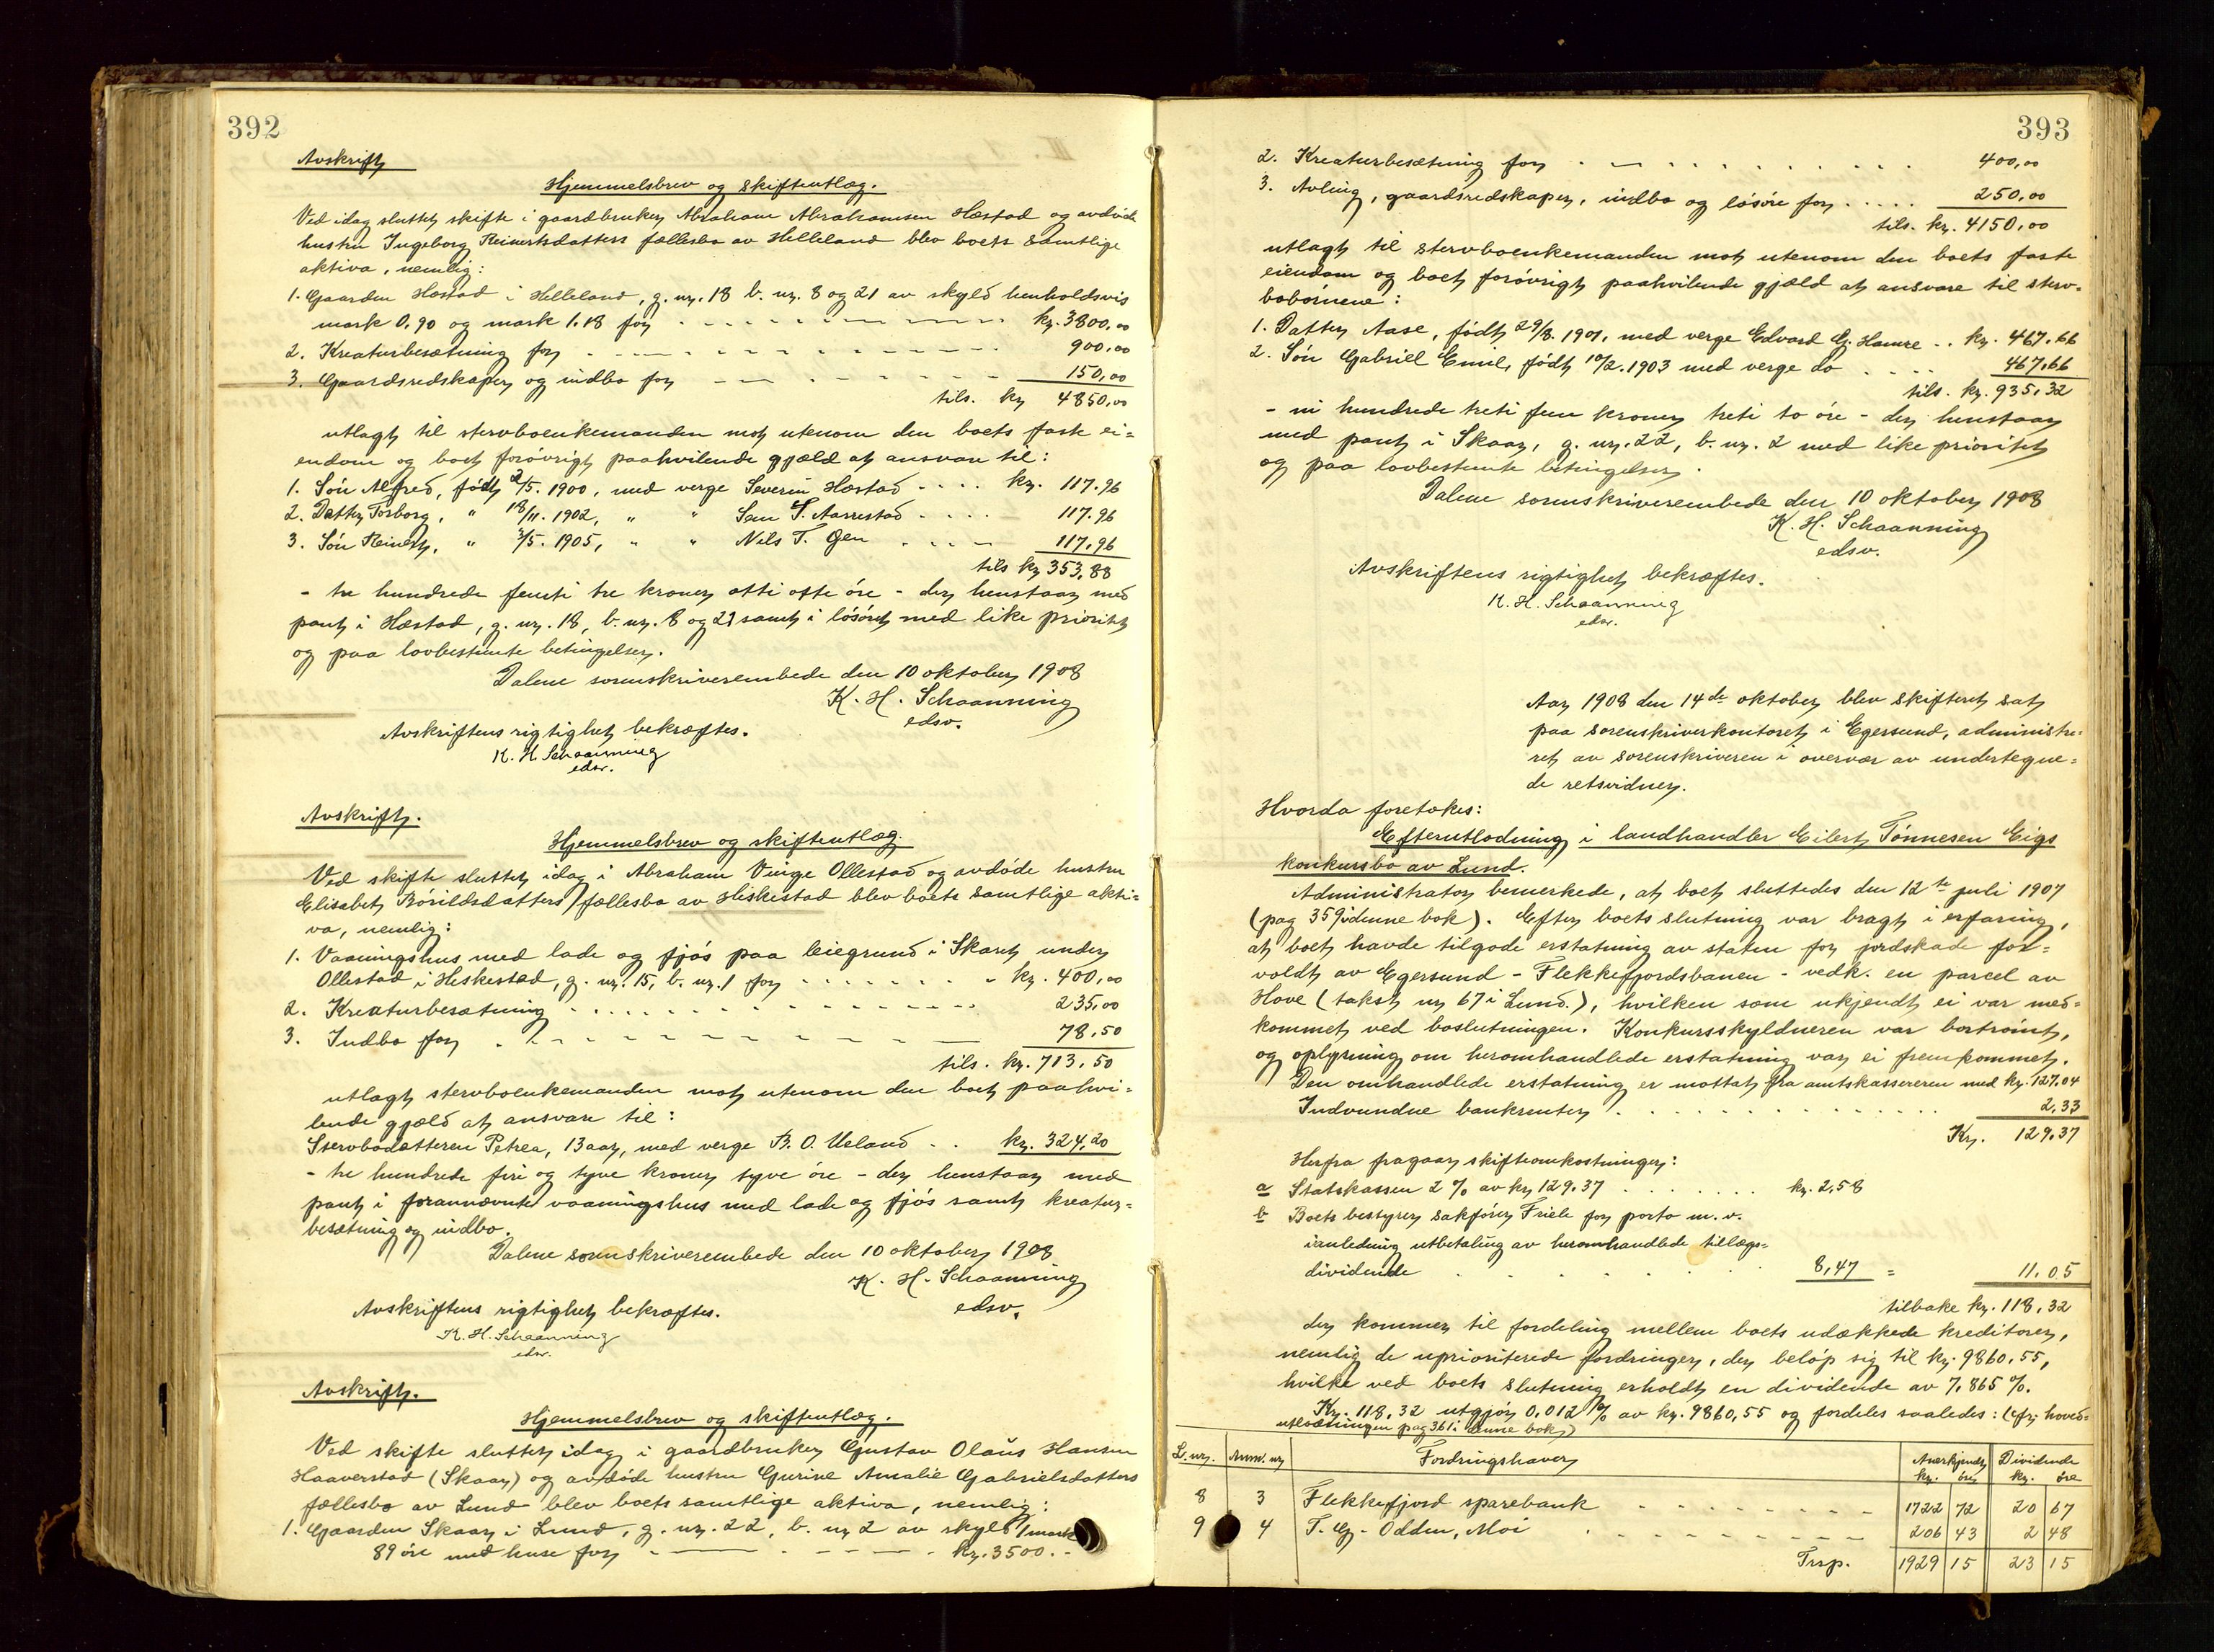 392
Avskrift
Hjemmelsbrev og skifteutlæg.
Ved idag sluttet skifte i gaardbruker Abraham Abrahamsen Hæstad og avdøde
hustru Ingeborg Reinertsdatters fællesbo av Helleland blev boets samtlige
aktiva, nemlig:
1. Gaarden Hæstad i Helleland, g. nr. 18 b. nr. 8 og 21 av skyld henholdsvis
mark 0,90 og mark 1.18 for kr. 3800,00
2. Kreaturbesætning for 900,00
3. Gaardsredskaper og indbo for 150,00
tils. kr 4850,00
utlagt til stervboenkemanden mot utenom den boets faste ei=
endom og boet forøvrigt paahvilende gjæld at ansvare til:
1. Søn Alfred, født 2/5. 1900, med verge Severin Hæstad kr. 117.96
2. Datter Torborg, " 18/11. 1902, " " Sem S. Aarrestad 117.96
3. Søn Reinert, " 3/5. 1905, " " Nils T. Gen 117.96
tils kr 353,88
- tre hundrede femti tre kroner otti otte øre - der henstaar med
pant i Hæstad, g. nr. 18, b. nr. 8 og 21 samt i løsøret med like prioritet
og paa lovbestemte betingelser.
Dalene sorenskriverembede den 10 oktober 1908
K. H. Schaanning
edsv.
Avskriftens rigtighet bekræftes.
K. H. Schaanning
edsv.
Avskrift.
Hjemmelsbrev og skifteutlæg.
Ved skifte sluttet idag i Abraham Vinge Ollestad og avdøde hustru
Elisabet Børildsdatters fællesbo av Heskestad blev boets samtlige akti=
va, nemlig:
1. Vaaningshus med lade og fjøs paa leiegrund i Skaret under
Ollestad i Heskestad, g. nr. 15, b. nr. 1 for kr. 400,00
2. Kreaturbesætning 235,00
3. Indbo for 78,50
tils. kr. 713,50
utlagt stervboenkemanden mot utenom den boet paahvi=
lende gjæld at ansvare til:
Stervbodatteren Petrea, 13 aar, med verge B. O. Ueland kr. 324,20
- tre hundrede firi og tyve kroner tyve øre - der henstaar med
pant i forannævnte vaaningshus med lade og fjøs samt kreatur=
besætning og indbo.
Dalene sorenskriverembede den 10 oktober 1908
K. H. Schaanning
edsv.
Avskriftens rigtighet bekræftes.
K. H. Schaanning
edsv.
Avskrift.
Hjemmelsbrev og skifteutlæg.
Ved skifte sluttet idag i gaardbruker Gustav Olaus Hansen
Haaverstad (Skaar) og avdøde hustru Gurine Amalie Gabrielsdatters
fællesbo av Lund blev boets samtlige aktiva, nemlig:
1. Gaarden Skaar i Lund, g. nr. 22, b. nr 2 av skyld 1 mark
89 øre med huse for kr. 3500.-
393
2. Kreaturbesætning for 400,00
3. Avling, gaardsredskaper, indbo og løsøre for 250,00
tils. kr. 4150,00
utlagt til stervboenkemanden mot utenom den boets faste
eiendom og boet forøvrigt paahvilende gjæld at ansvare til sterv-
bobørnene:
1. Datter Aase, født 29/8. 1901, med verge Edvard G. Hamre kr. 467.66
2. Søn Gabriel Emil, født 10/2. 1903 med verge do 467,66
tils. kr. 935,32
- ni hundrede treti fem kroner treti to øre - der henstaar
med pant i Skaar, g. nr. 22, b. nr. 2 med like prioritet
og paa lovbestemte betingelser.
Dalene sorenskriverembede den 10 oktober 1908
K. H. Schaanning
edsv.
Avskriftens rigtighet bekræftes.
K. H. Schaanning
edsv.
Aar 1908 den 14de oktober blev skifteret sat
paa sorenskriverkontoret i Egersund, administre=
ret av sorenskriveren i overvær av undertegne=
de retsvidner.
Hvorda foretokes:
Efterutlodning i landhandler Eilert Tønnesen Eigs
konkursbo av Lund.
Administrator bemerkede, at boet sluttedes den 12te juli 1907
(pag 359 i denne bok). Efter boets slutning var bragt i erfaring,
at boet havde tilgode erstatning av staten for jordskade for=
voldt av Egersund - Flekkefjordsbanen - vedk. en parcel av
Hove (takst nr 67 i Lund.), hvilken som ukjendt ei var med=
kommet ved boslutningen. Konkursskyldneren var bortrømt,
og oplysning om heromhandlede erstatning var ei fremkommet.
Den omhandlede erstatning er mottat fra amtskassereren med kr. 127.04
Indvundne bankrenter 2,33
Kr. 129,37
Herfra fragaar skifteomkostninger:
a Statskassen 2 % av kr 129.37 kr. 2,58
b Boets bestyrer sakfører Friele for porto m. v.
ianledning utbetaling av heromhandlede tillægs=
dividende 8,47 = 11.05
tilbake kr. 118,32
der kommer til fordeling mellem boets udækkede kreditorer,
nemlig de uprioriterede fordringer, der beløp sig til kr. 9860,55,
hvilke ved boets slutning erholdt en dividende av 7.865 %.
Kr. 118,32 utgjør 0,012 % av kr. 9860,55 og fordeles saaledes: (cfr. hoved=
utlodningen pag 361 i denne bok)
L. nr. Anm. nr Fordringshaver Anerkjendt kr. øre Dividende kr. øre
8 3 Flekkefjord sparebank 1722 72 20 67
9 4 T. G. Odden, Moi 206 43 2 48
Trsp. 1929 15 23 15